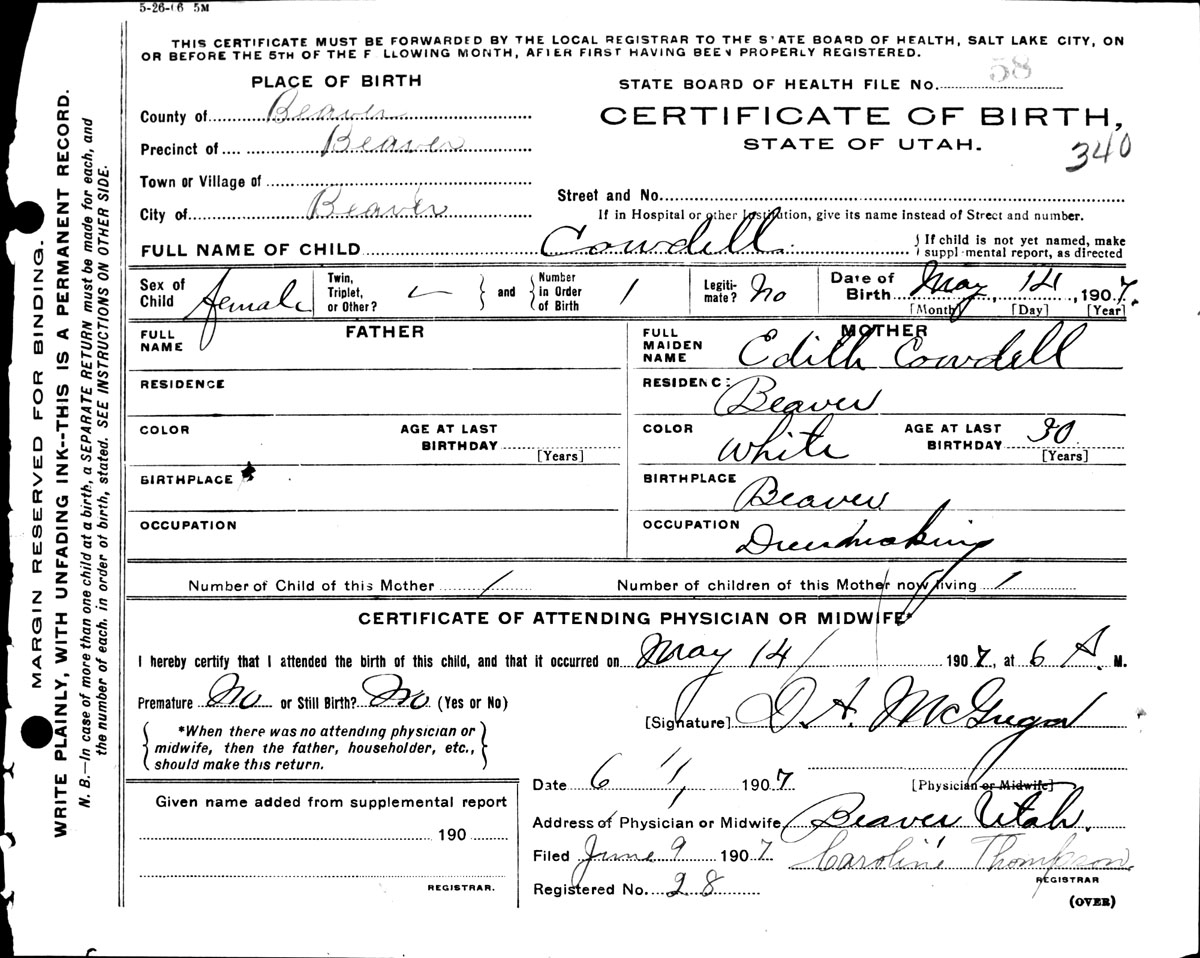 5-26-06 5M
THIS CERTIFICATE MUST BE FORWARDED BY THE LOCAL REGISTRAR TO THE STATE BOARD OF HEALTH, SALT LAKE CITY, ON
OR BEFORE THE 5TH OF THE F LLOWING MONTH, AFTER FIRST HAVING BEEN PROPERLY REGISTERED.
PLACE OF BIRTH
County of Beaver
Precinct of Beaver
Town or Village of
City of Beaver
STATE BOARD OF HEALTH FILE No. 58
CERTIFICATE OF BIRTH,
STATE OF UTAH.
340
Street and No.
If in Hospital or other Institution, give its name instead of Street and number.
FULL NAME OF CHILD Cowdell { If child is not yet named, make
suppl mental report, as directed
Sex of Child female Twin, Triplet, or Other? and Number in Order of Birth 1 Legiti-mate? No Date of Birth May 14, 1907.
[Month] [Day] [Year]
FATHER
FULL NAME
RESIDENCE
COLOR AGE AT LAST BIRTHDAY
[Years]
BIRTHPLACE
OCCUPATION
MOTHER
FULL MAIDEN NAME Edith Cowdell
RESIDENC: Beaver
COLOR White AGE AT LAST BIRTHDAY 30
[Years]
BIRTHPLACE Beaver
OCCUPATION Dressmaking
Number of Child of this Mother 1 Number of children of this Mother now living 1
CERTIFICATE OF ATTENDING PHYSICIAN OR MIDWIFE*
I hereby certify that I attended the birth of this child, and that it occurred on May 14 1907, at 6 A. M.
Premature No or Still Birth? No (Yes or No)
*When there was no attending physician or
midwife, then the father, householder, etc.,
should make this return.
[Signature] D. A. McGregor
[Physician or Midwife]
Date 6 1, 1907
Address of Physician or Midwife Beaver Utah.
Filed June 9 1907. Caroline Thompson
REGISTRAR
Registered No. 28
(OVER)
Given name added from supplemental report
190
REGISTRAR.
MARGIN RESERVED FOR BINDING.
WRITE PLAINLY, WITH UNFADING INK--THIS IS A PERMANENT RECORD.
N. B.—In case of more than one child at a birth, a SEPARATE RETURN must be made for each, and
the number of each. in order of birth, stated. SEE INSTRUCTIONS ON OTHER SIDE.